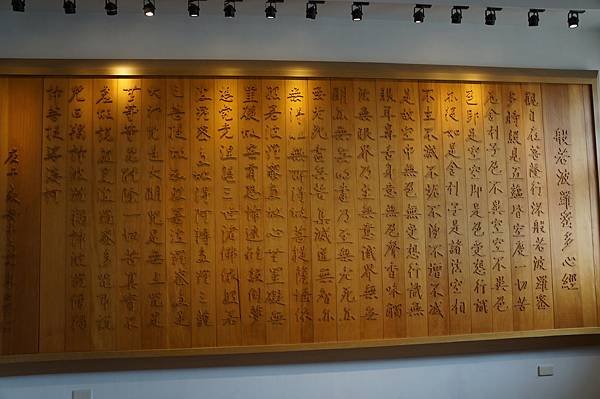 般若波羅蜜多心經
觀自在菩薩行深般若波羅蜜
多時照見五蘊皆空度一切苦
厄舍利子色不異空空不異色
色即是空空即是色受想行識
亦復如是舍利子是諸法空相
不生不滅不垢不淨不增不減
是故空中無色無受想行識無
眼耳鼻舌身意無色聲香味觸
法無眼界乃至無意識界無無
明亦無無明盡乃至無老死亦
無老死盡無苦集滅道無智亦
無得以無所得故菩提薩埵依
般若波羅蜜多故心無罣礙無
罣礙故無有恐怖遠離顛倒夢
想究竟涅槃三世諸佛依般若
波羅蜜多故得阿耨多羅三藐
三菩提故知般若波羅蜜多是
大神咒是大明咒是無上咒是
無等等咒能除一切苦真實不
虛故說般若波羅蜜多咒即說
咒曰揭諦揭諦波羅揭諦波羅僧揭
諦菩提薩婆訶